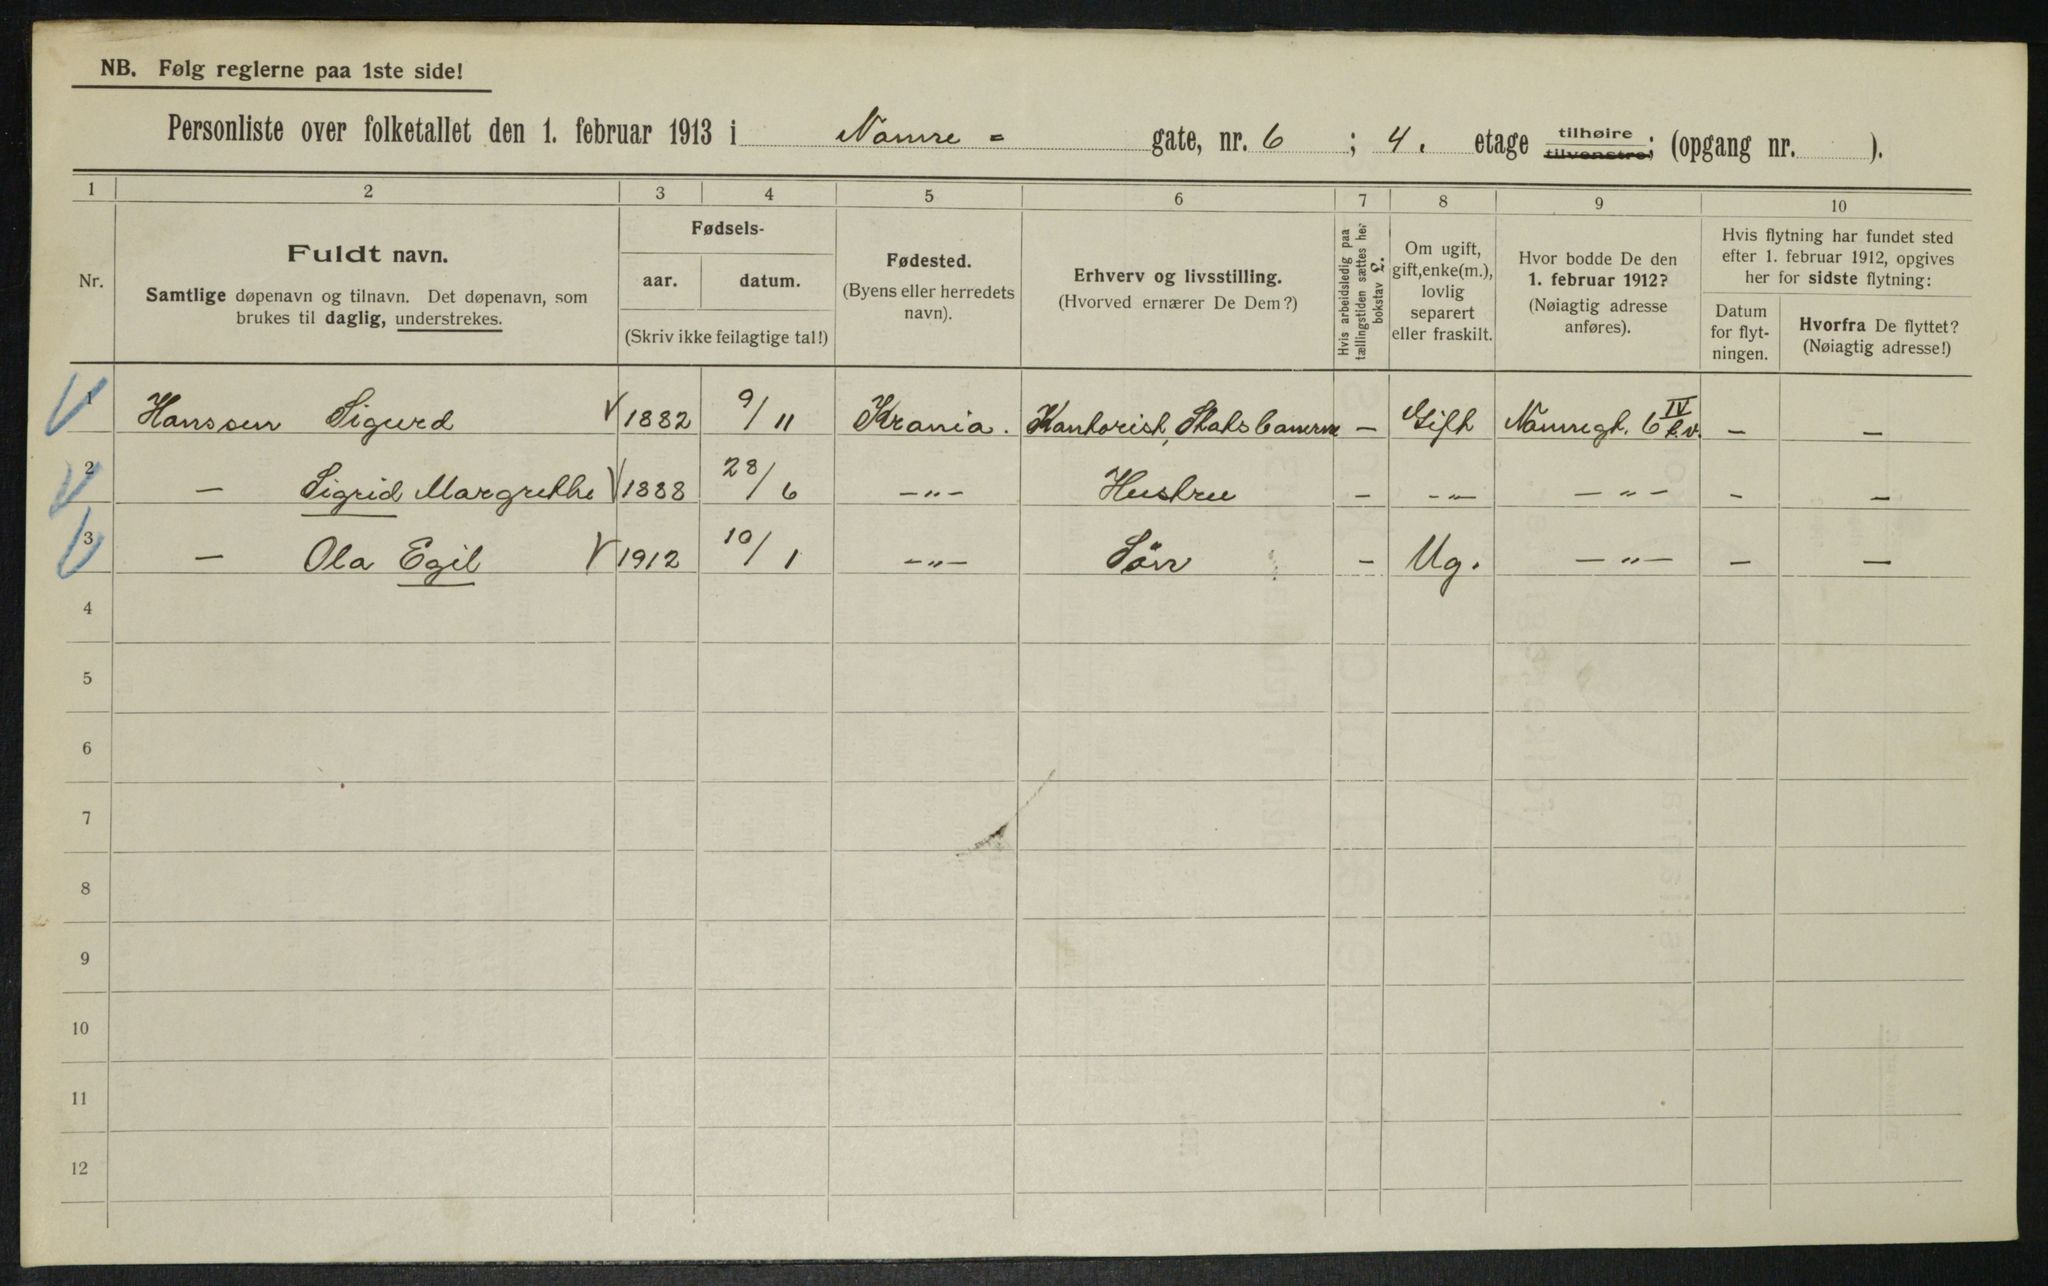 NB. Følg reglerne paa 1ste side!
Personliste over folketallet den 1. februar 1913 i Namre - gate, nr. 6 ; 4. etage tilhøire tilvenstre; (opgang nr. ).
1 2 3 4 5 6 7 8 9 10
Nr.
Fuldt navn.
Samtlige døpenavn og tilnavn. Det døpenavn, som
brukes til daglig, understrekes.
Fødsels-
aar. datum.
(Skriv ikke feilagtige tal!)
Fødested.
(Byens eller herredets
navn).
Erhverv og livsstilling.
(Hvorved ernærer De Dem?)
Hvis arbeidsledig paa
tællingstiden sættes her
bokstav L.
Om ugift,
gift, enke(m.),
lovlig
separert
eller fraskilt.
Hvor bodde De den
1. februar 1912?
(Nøiagtig adresse
anføres).
Hvis flytning har fundet sted
efter 1. februar 1912, opgives
her for sidste flytning:
Datum
for flyt-
ningen.
Hvorfra De flyttet?
(Nøiagtig adresse!)
1 Hanssen Sigurd V 1882 9/11 Krania. Kontorist, Statsbanerne — Gift Namregt. 6 IV — —
2 — Sigrid Margrethe V 1888 28/6 —„— Hustru — —„— —„— — —
3 — Ola Egil V 1912 10/1 —„— Sön — Ug. —„— — —
4
5
6
7
8
9
10
11
12